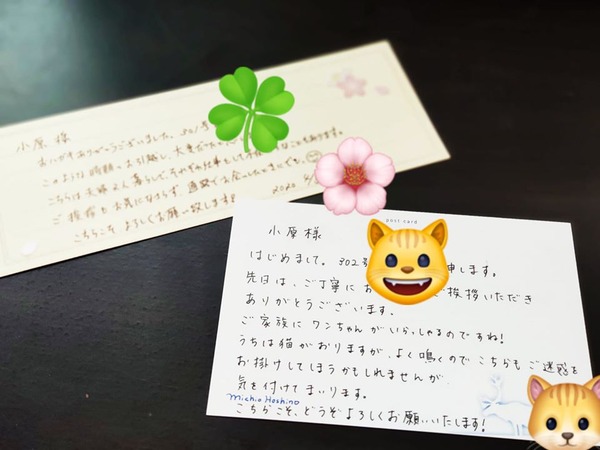 小原様
ありがとうございました。301号
このような時期にお引越し、大変だった
こちらは夫婦2人暮らしで、それぞれ仕事をして不在
なこともあります。
ご挨拶もお気になさらず 通路でお会いしたときにでも。
こちらこそ よろしくお願い致します
2020
post card
小原様
はじめまして。302号 申します。
先日は、ご丁寧にお ご挨拶いただき
ありがとうございます。
ご家族にワンちゃんがいらっしゃるのですね!
うちは猫がおりますが、よく鳴くのでこちらもご迷惑を
お掛けしてしまうかもしれませんが、
気を付けてまいります。
Michio Hoshino
こちらこそ、どうぞよろしくお願いいたします!